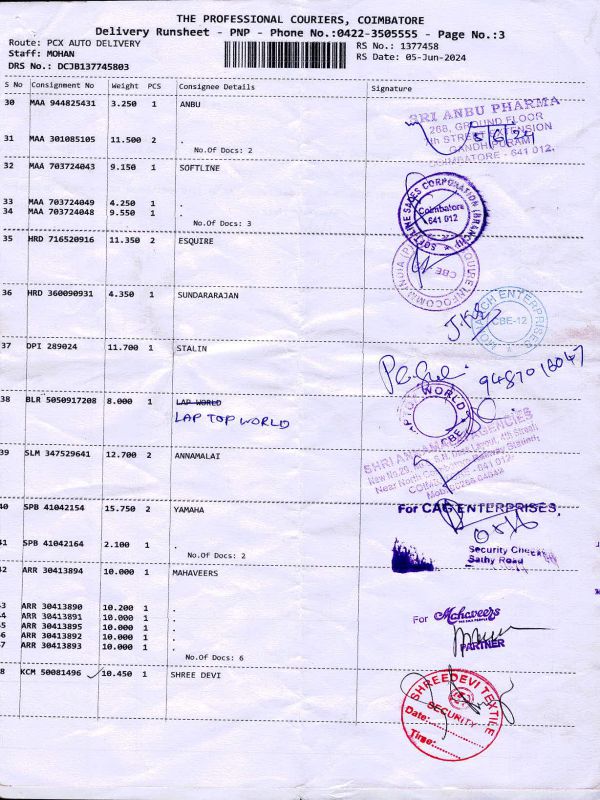 THE PROFESSIONAL COURIERS, COIMBATORE
Delivery Runsheet - PNP - Phone No.:0422-3505555 - Page No.:3
Route: PCX AUTO DELIVERY RS No.: 1377458
Staff: MOHAN RS Date: 05-Jun-2024
DRS No.: DCJB137745803
S No Consignment No Weight PCS Consignee Details Signature
30 MAA 944825431 3.250 1 ANBU
SRI ANBU PHARMA
268, GROUND FLOOR
4th STREET EXTENSION
GANDHIPURAM
COIMBATORE - 641 012.
5/6/24
31 MAA 301085105 11.500 2 .
No.Of Docs: 2
32 MAA 703724043 9.150 1 SOFTLINE
33 MAA 703724049 4.250 1 .
34 MAA 703724048 9.550 1 .
No.Of Docs: 3
SOFTLINE SALES CORPORATION (BRANCH)
Coimbatore
641 012
35 HRD 716520916 11.350 2 ESQUIRE
CBE
36 HRD 360090931 4.350 1 SUNDARARAJAN
ENTERPRISES
CBE-12
37 DPI 289024 11.700 1 STALIN
38 BLR 5050917208 8.000 1 LAP WORLD
LAP TOP WORLD
WORLD
CBE
39 SLM 347529641 12.700 2 ANNAMALAI
SHRI ANNAMALAI AGENCIES
40 SPB 41042154 15.750 2 YAMAHA
For CAG ENTERPRISES,
41 SPB 41042164 2.100 1 .
No.Of Docs: 2
Security Check
Sathy Road
42 ARR 30413894 10.000 1 MAHAVEERS
43 ARR 30413890 10.200 1 .
44 ARR 30413891 10.000 1 .
45 ARR 30413895 10.000 1 .
46 ARR 30413892 10.000 1 .
47 ARR 30413893 10.000 1 .
No.Of Docs: 6
For Mahaveers
PARTNER
48 KCM 50081496 10.450 1 SHREE DEVI
SHREEDEVI TEXTILE
SECURITY
Date:
Time: